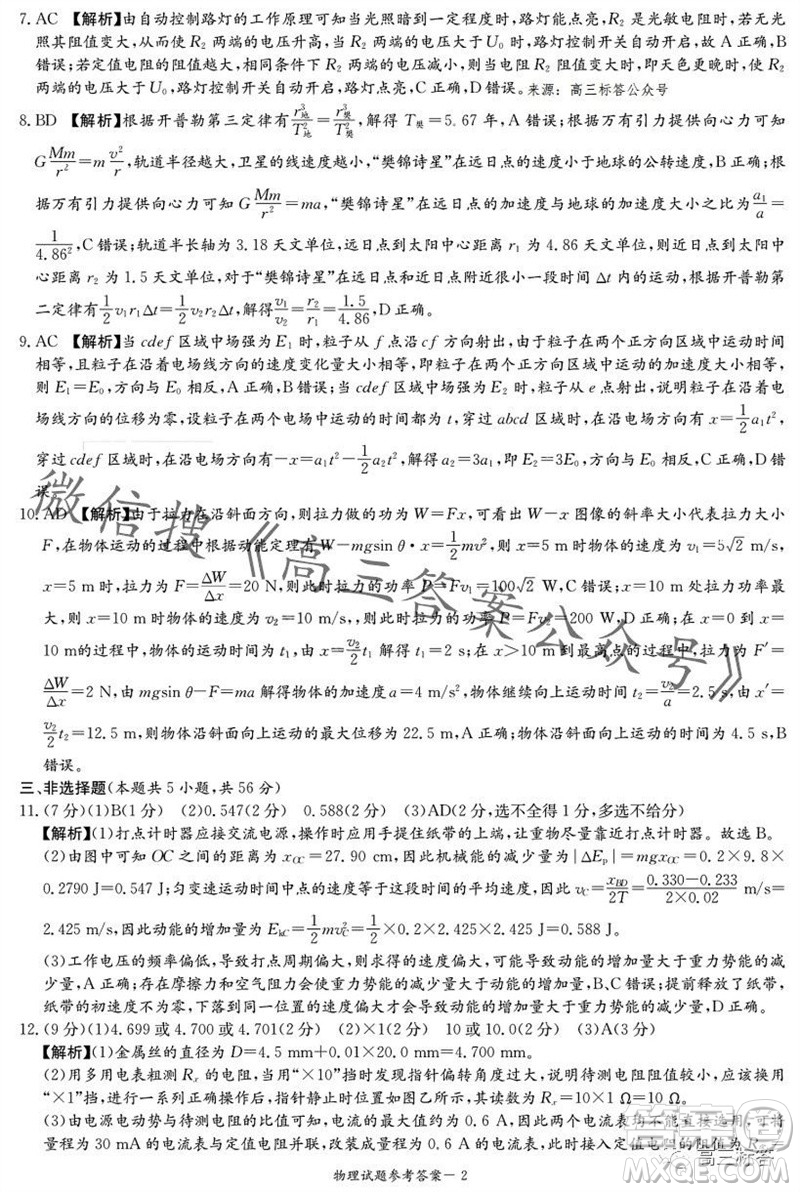 7. AC 【解析】由自动控制路灯的工作原理可知当光照暗到一定程度时,路灯能点亮,R₂ 是光敏电阻时,若无光
照其阻值变大,故使 R₂ 两端的电压升高,当 R₂ 两端的电压大于 U₀ 时,路灯控制开关自动开启,故 A 正确,B
错误;若定值电阻的阻值越大,相同条件下 R₂ 两端的电压越小,则当电阻 R₂ 阻值更大时,即天色更晚时,R₂
两端的电压大于U₀,路灯控制开关自动开启,路灯点亮,C 正确,D 错误。来源:高三标答公众号
8. BD 【解析】根据开普勒第三定律有 r³地/T²地 = r³樊/T²樊,解得 T樊=5.67 年,A 错误;根据万有引力提供向心力可知
G Mm/r² = m v²/r,轨道半径越大,卫星的线速度越小,故“樊锦诗星”在远日点的速度小于地球的公转速度,B 正确;根
据万有引力提供向心力可知 G Mm/r² = ma,“樊锦诗星”在远日点的加速度与地球的加速度大小之比为 a₁/a =
1/4.86²,C 错误;轨道半长轴为 3.18 天文单位,远日点到太阳中心距离 r₁ 为 4.86 天文单位,近日点到太阳中
心距离 r₂ 为 1.5 天文单位,对于“樊锦诗星”在远日点和近日点附近很小一段时间 Δt 内的运动,根据开普勒第
二定律有 1/2 v₁r₁Δt = 1/2 v₂r₂Δt,解得 v₁/v₂ = r₂/r₁ = 1.5/4.86,D 正确。
9. AC 【解析】当 cdef 区域中场强为 E₁ 时,粒子从 f 点沿 cf 方向射出,由于粒子在两个正方向区域中运动时间
相等,且粒子在沿着电场线方向的速度变化量大小相等,即粒子在两个正方向区域中运动的加速度大小相等,
则 E₁=E₀,方向与 E₀ 相反,A 正确,B 错误;当 cdef 区域中场强为 E₂ 时,粒子从 e 点射出,说明粒子在沿着电
场线方向的位移为零,设粒子在两个电场中运动的时间都为 t,穿过 abcd 区域时,在沿电场方向有 x = 1/2 a₁t²,
穿过 cdef 区域时,在沿电场方向有 −x = a₁t² − 1/2 a₂t²,解得 a₂=3a₁,即 E₂=3E₀,方向与 E₀ 相反,C 正确,D 错
误。
10. AD 【解析】由于拉力在沿斜面方向,则拉力做的功为 W=Fx,可看出 W−x 图像的斜率大小代表拉力大小
F,在物体运动的过程中根据动能定理有 W−mgsin θ·x = 1/2 mv²,则 x=5 m 时物体的速度为 v₁=5√2 m/s,
x=5 m 时,拉力为 F = ΔW/Δx = 20 N,则此时拉力的功率 P=Fv₁=100√2 W,C 错误;x=10 m 处拉力功率最
大,则 x=10 m 时物体的速度为 v₂=10 m/s,,则此时拉力的功率 P=Fv₂=200 W,D 正确;在 x=0 到 x=
10 m的过程中,物体运动的时间为 t₁,由 x = v₂/2 t₁ 解得 t₁=2 s;在 x>10 m 到最高点的过程中,拉力为 F′=
ΔW/Δx = 2 N,由 mgsin θ−F=ma 解得物体的加速度 a=4 m/s²,物体继续向上运动的时间 t₂ = v₂/a = 2.5 s,由 x′=
v₂/2 t₂ = 12.5 m,则物体沿斜面向上运动的位移为 22.5 m,A 正确;物体沿斜面向上运动的时间为 4.5 s,B
错误。
三、非选择题(本题共 5 小题,共 56 分)
11. (7 分)(1)B(1 分) (2)0.547(2 分) 0.588(2 分) (3)AD(2 分,选不全得 1 分,多选不给分)
【解析】(1)打点计时器应接交流电源,操作时应用手提住纸带的上端,让重物尽量靠近打点计时器。故选 B。
(2)由图中可知 OC 之间的距离为 x_OC=27.90 cm,因此机械能的减少量为 |ΔEₚ|=mgx_OC=0.2×9.8×
0.2790 J=0.547 J;匀变速运动时间中点的速度等于这段时间的平均速度,因此 v_C = x_BD/2T = (0.330−0.233)/(2×0.02) m/s=
2.425 m/s,因此动能的增加量为 E_kC = 1/2 mv²_C = 1/2×0.2×2.425×2.425 J=0.588 J。
(3)工作电压的频率偏低,导致打点周期偏大,则求得的速度偏大,可能会使动能的增加量大于重力势能的减
少量;存在摩擦力和空气阻力会使动能的增加量小于重力势能的减少量;接通电源前释放了纸带,
纸带的初速度不为零,下落到同一位置的速度偏大才会导致动能的增加量大于重力势能的减少量。
12. (9 分)(1)4.699 或 4.700 或 4.701(2 分) (2)×1(2 分) 10 或 10.0(2 分) (3)A(3 分)
【解析】(1)金属丝的直径为 D=4.5 mm+0.01×20.0 mm=4.700 mm。
(2)用多用电表粗测 Rₓ 的电阻,当用“×10”挡时发现指针偏转角度过大,说明待测电阻阻值较小,应该换用
“×1”挡,进行一系列正确操作后,指针静止时位置如图乙所示,其读数为 Rₓ=10×1 Ω=10 Ω。
(3)由电源电动势与待测电阻的比值可知,电流的最大值约为 0.6 A,因此两个电流表均不能直接选用,可将
量程为 30 mA 的电流表与定值电阻并联,改装成量程为 0.6 A 的电流表,此时接入定值电阻的阻值为 R
物理试题参考答案− 2
微信搜《高三答案公众号》
高三标答